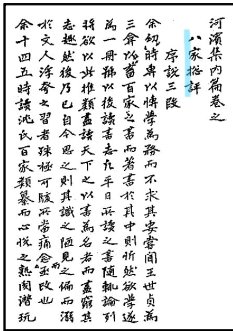 河濱集內篇卷之
八家總評
序說三段
余幼時專以博學為務而不求其要嘗聞王世貞為
三弇以蓄百家之書而著書於其中則忻然欲學遂
為一冊號以後讀書志凡平日所讀之書隨輒論列
將欲以此推類盡讀天下之以書為名者而盡窮其
志趣然後乃已自今思之則其識之陋見之偏而溺
於文人浮夸之習者殊極可駭所當痛念而亟改也
余十四五時讀洮氏百家類纂而心悅之熟閱潛玩